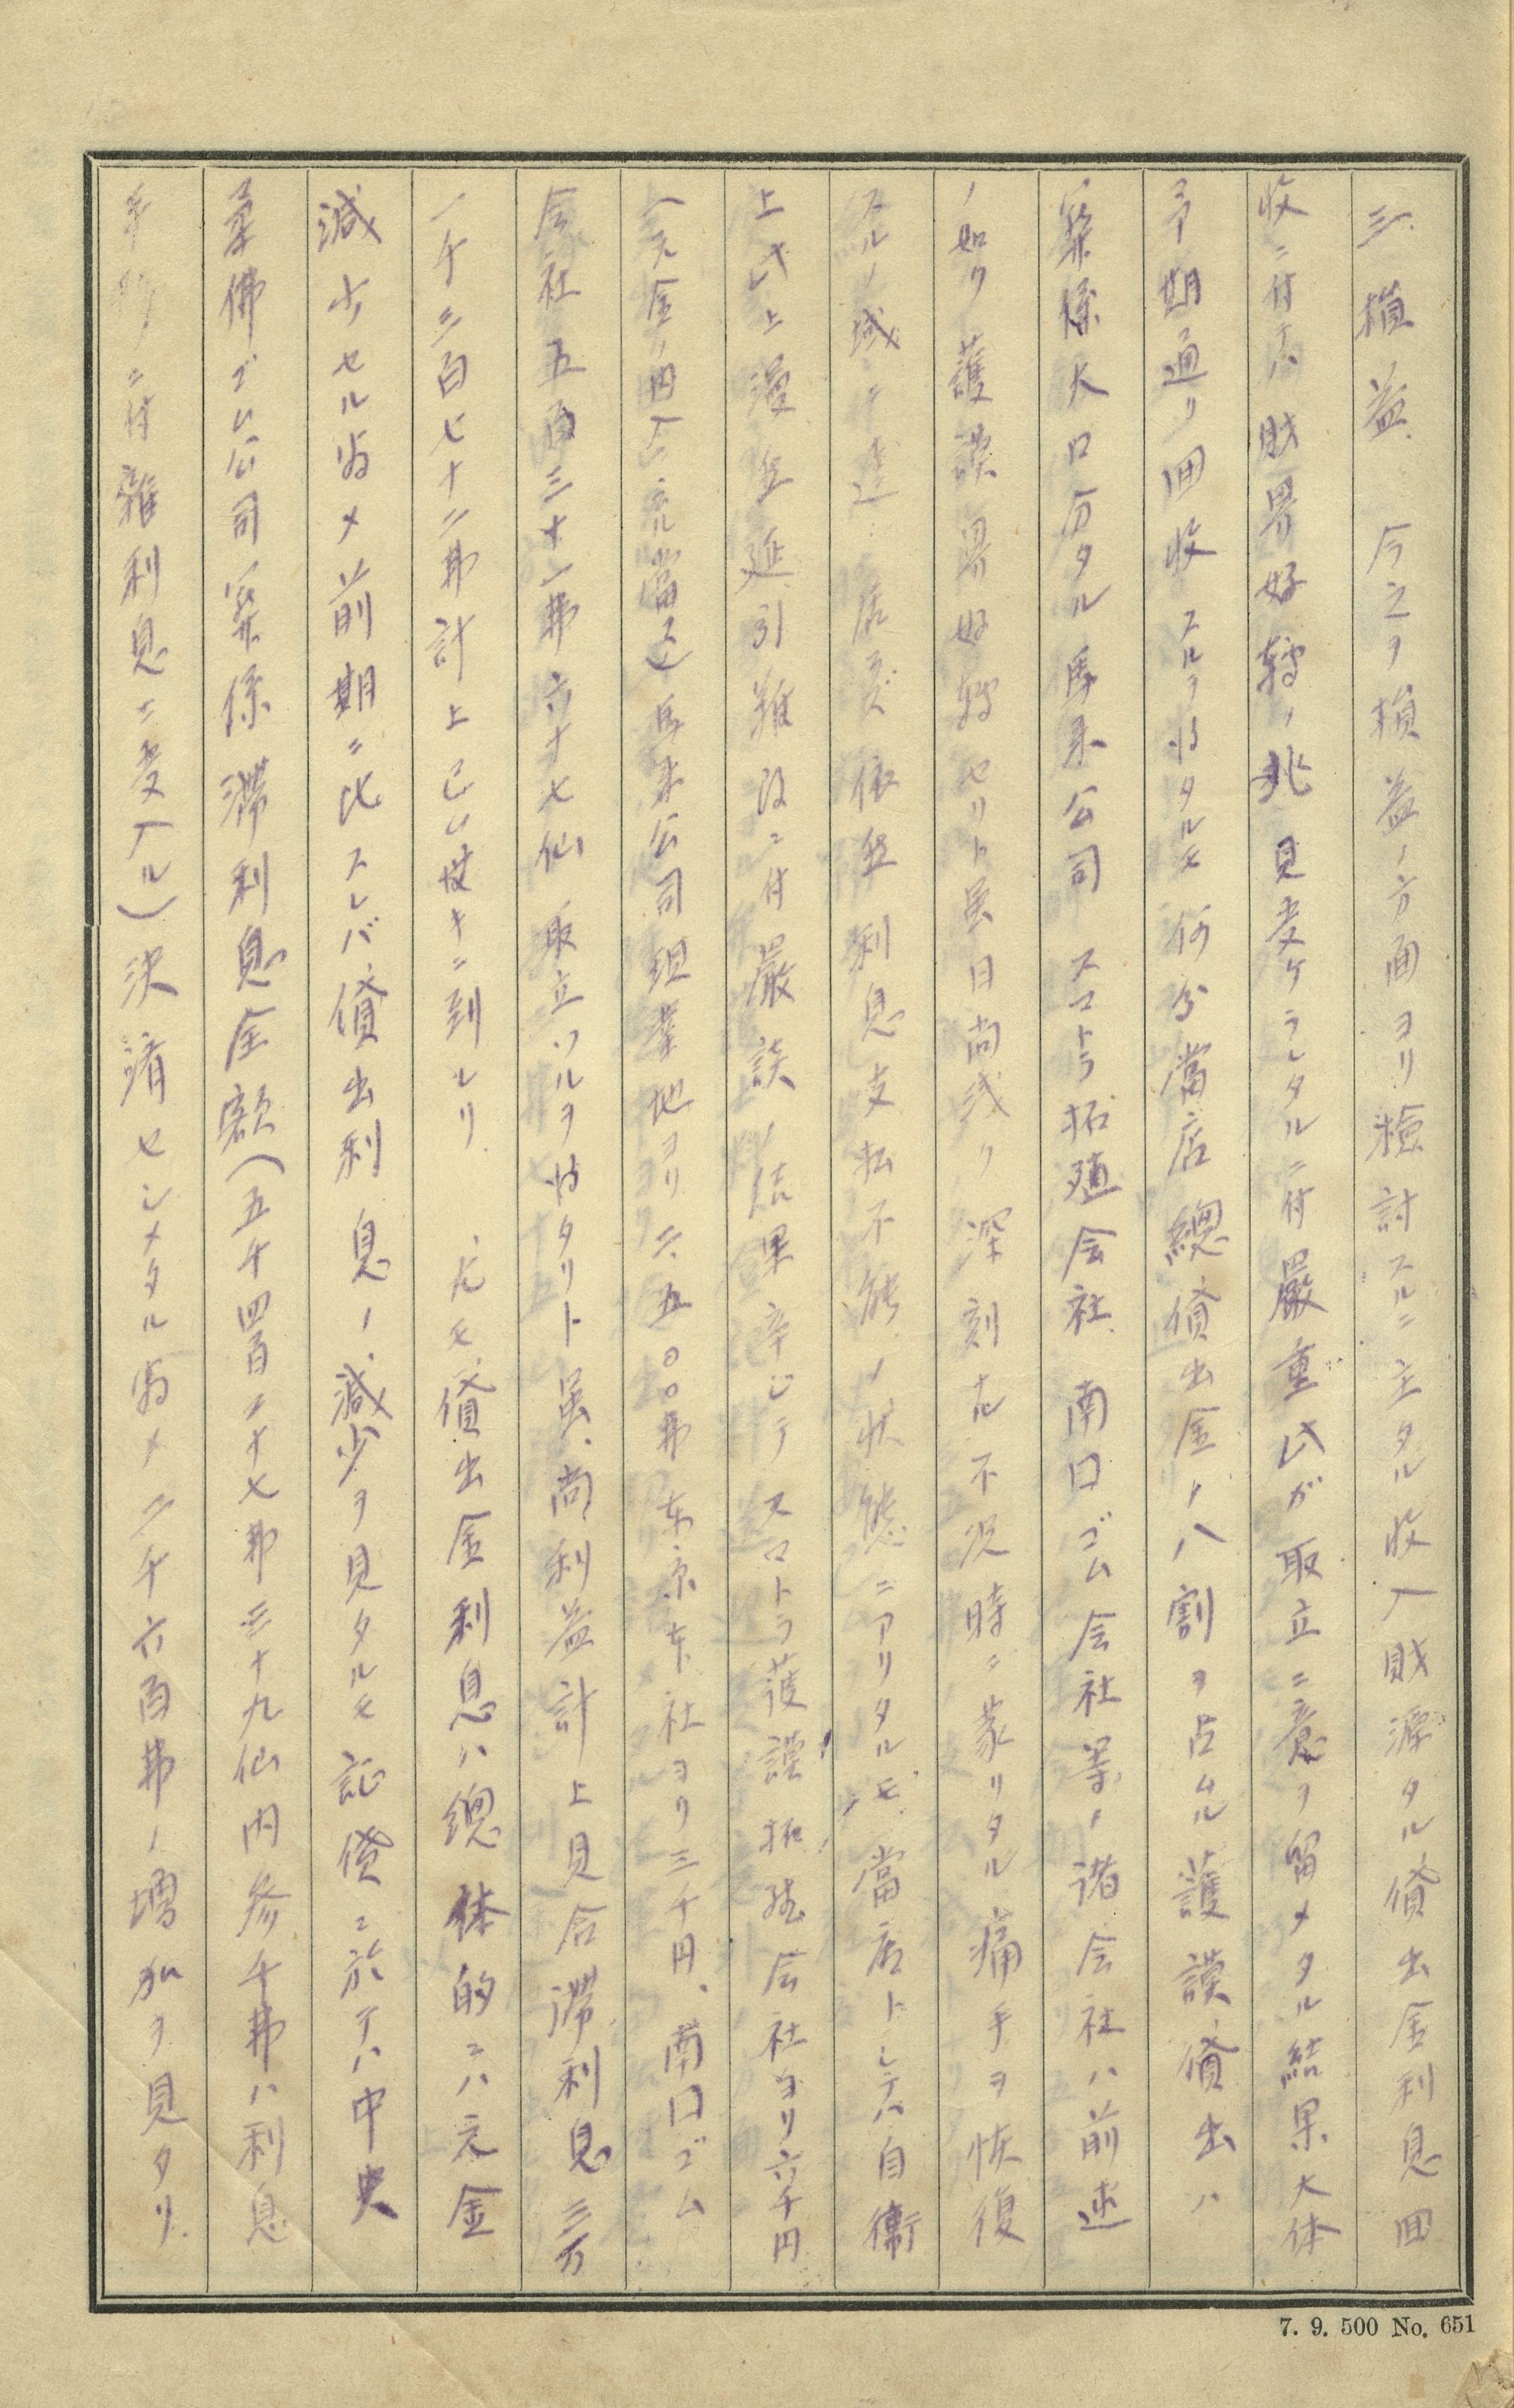 三、損益、 今之ヲ損益ノ方面ヨリ検討スルニ主タル收入財源タル貸出金利息囬
收ニ付テハ財界好轉ノ兆見受ケラレタルニ付嚴重此ガ取立ニ意ヲ留メタル結果大体
予期通リ囬收スルヲ得タルモ何分當店總貸出金ノ八割ヲ占ムル護謨貸出ハ
関係大口分タル馬来公司 スマトラ拓殖会社、南口ゴム会社等ノ諸会社ハ前述
ノ如ク護謨界好轉セリト虽 尚残ク深刻ナル不況時ニ蒙リタル痛手ヲ恢復
スルノ域ニ達 居ラズ依然利息支払不能ノ状態ニアリタルモ、當店トシテハ自衛
上此上漫然延引難致ニ付嚴談ノ結果辛ジテスマトラ護謨拓殖会社ヨリ六千円
（元金ノ内入ニ充當ス）馬来公司 地ヨリ二、五〇〇弗 社ヨリ三千円、南口ゴム
会社五百三十一弗六十七仙取立ツルヲ得タリト虽、尚利益計上見合滞利息三万
一千三百七十二弗計上 ニ到レリ、 尤モ、貸出金利息ハ總体的ニハ元金
減少セル為メ前期ニ比スレバ、貸出利息ノ減少ヲ見タルモ証貸ニ於テハ中央
ゴム公司関係滞利息全額（五千四百二十七弗三十九仙内参千弗ハ利息
ニ付雑利息ニ受入ル）決済セシメタル為メ二千六百弗ノ増加ヲ見タリ、
7. 9. 500 No. 651